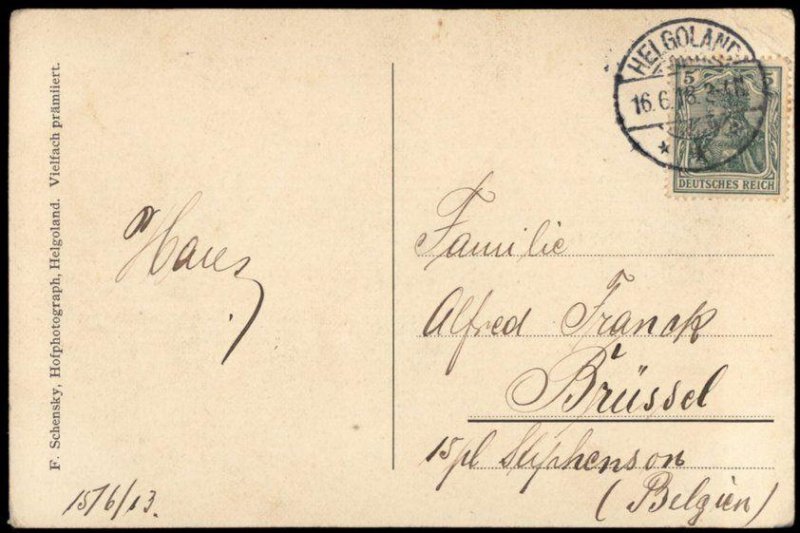 F. Schensky, Hofphotograph, Helgoland. Vielfach prämiiert.
HELGOLAND
16.6.
5 5
DEUTSCHES REICH
Familie
Alfred Franck
Brüssel
15 pl Stephenson
(Belgien)
15/6/13.